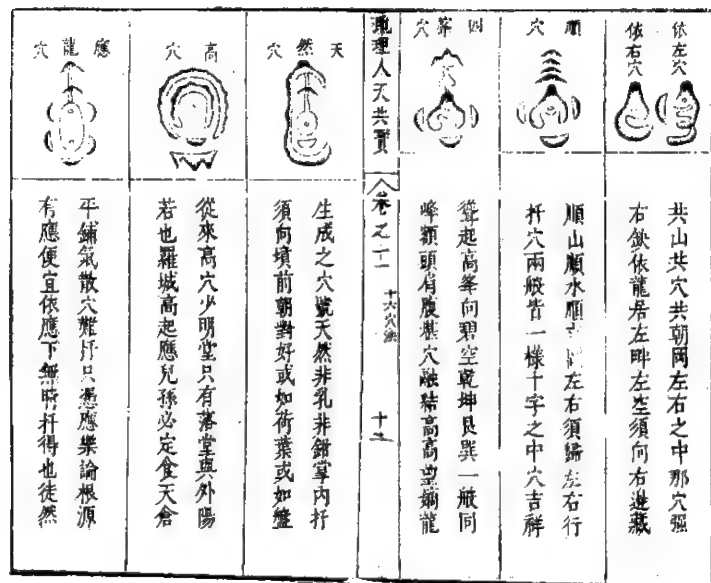 依左穴
依右穴
共山共穴共朝岡左右之中那穴強
右缺依龍居左畔左空須向右邊藏
順穴
順山順水順 岡左右須歸左右行
扦穴兩般皆一樣十字之中穴吉祥
四峯穴
聳起高峯向碧空乾坤艮巽一般同
峰額頭有 穴融結高高望 龍
地理人天共寶
卷之十一
十六穴法
天然穴
生成之穴號天然非乳非鉗掌內扦
須向墳前朝對好或如荷葉或如盤
高穴
從來高穴少明堂只有落堂與外陽
若也羅城高起應兒孫必定食天倉
應龍穴
平鋪氣散穴難扦只憑應樂論根源
有應便宜依應下無時扦得也徒然